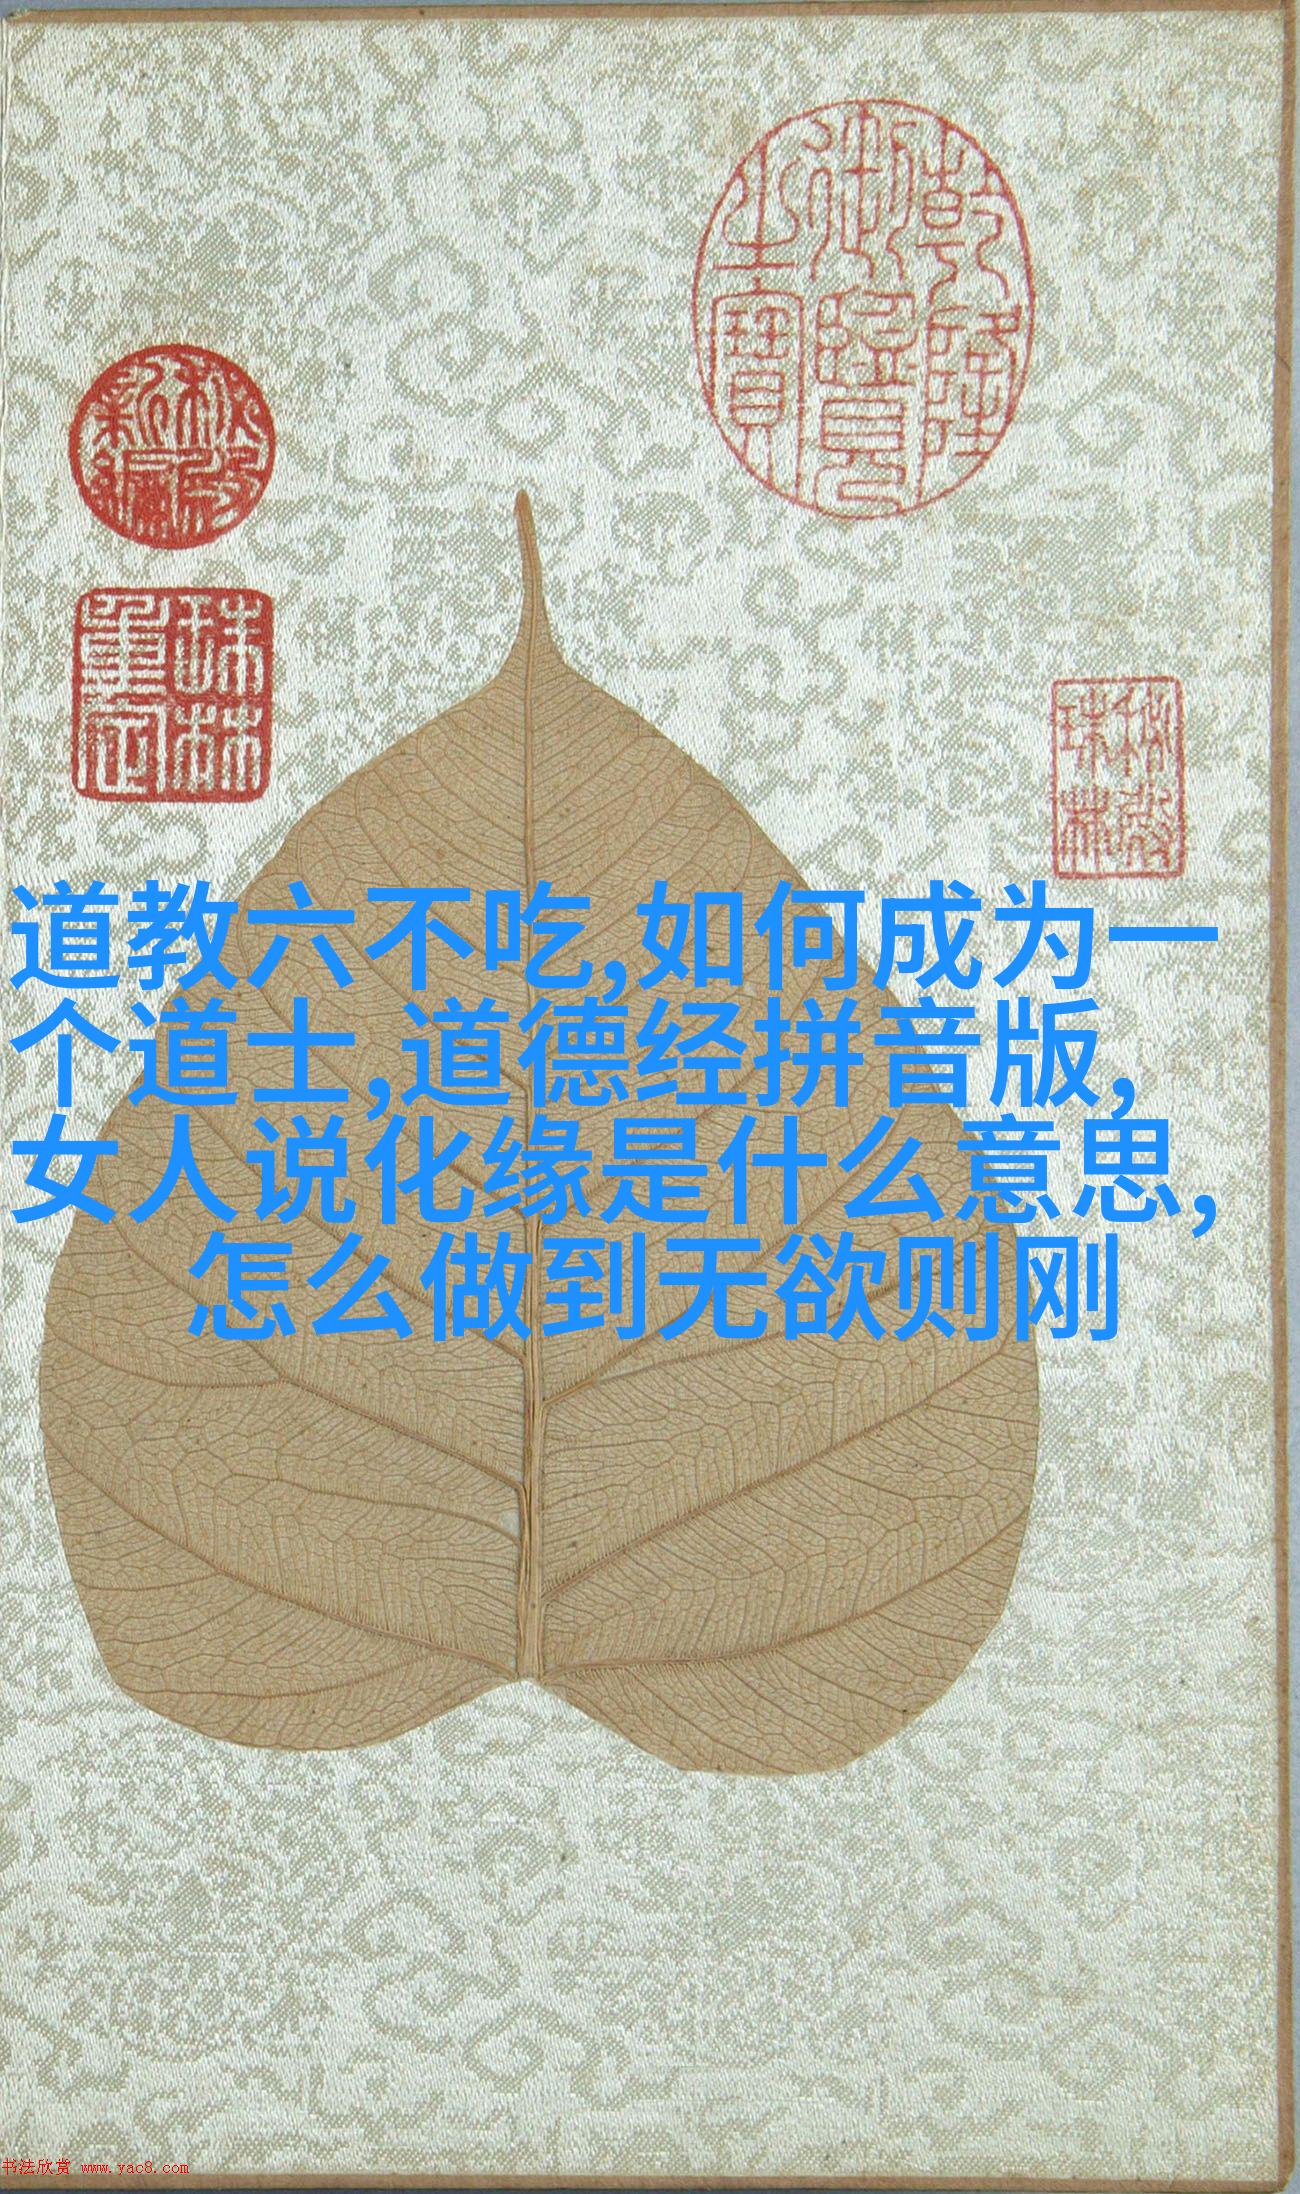 乾隆
御覽
之寶
秘殿
新編
珠林
重定
秘殿
珠林
道教六不吃,如何成为一
个道士,道德经拼音版,
女人说化缘是什么意思,
怎么做到无欲则刚
书法欣赏 www.yac8.com